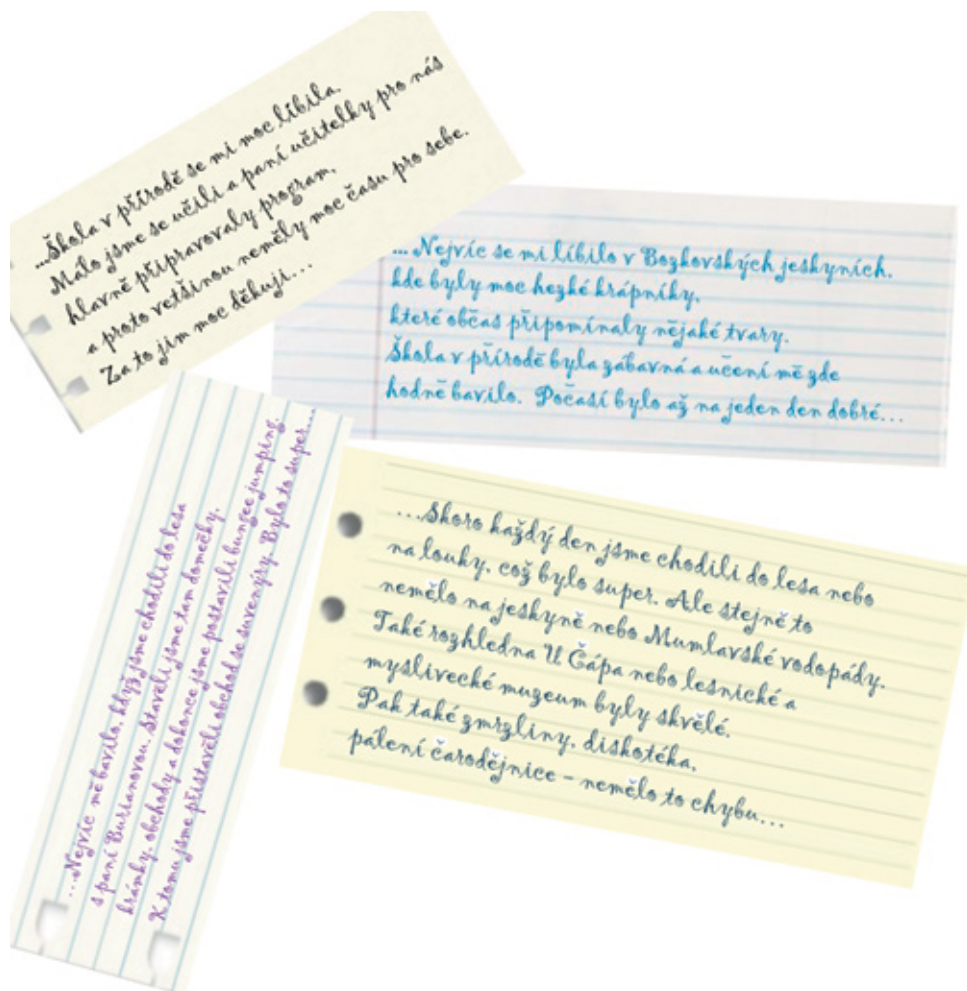 ...Škola v přírodě se mi moc líbila.
Málo jsme se učili a paní učitelky pro nás
hlavně připravovaly program,
a proto vetšinou neměly moc času pro sebe.
Za to jim moc děkuji...
... Nejvíc se mi líbilo v Bozkovských jeskyních,
kde byly moc hezké krápníky,
které občas připomínaly nějaké tvary.
Škola v přírodě byla zábavná a učení mě zde
hodně bavilo. Počasí bylo až na jeden den dobré...
...Nejvíc mě bavilo, když jsme chodili do lesa
s paní Burianovou. Stavěli jsme tam domečky,
krámky, obchody a dokonce jsme postavili bungee jumping.
K tomu jsme přistavěli obchod se suvenýry. Bylo to super...
...Skoro každý den jsme chodili do lesa nebo
na louky, což bylo super. Ale stejně to
nemělo na jeskyně nebo Mumlavské vodopády.
Také rozhledna U Čápa nebo lesnické a
myslivecké muzeum byly skvělé.
Pak také zmrzliny, diskotéka,
pálení čarodějnice - nemělo to chybu...